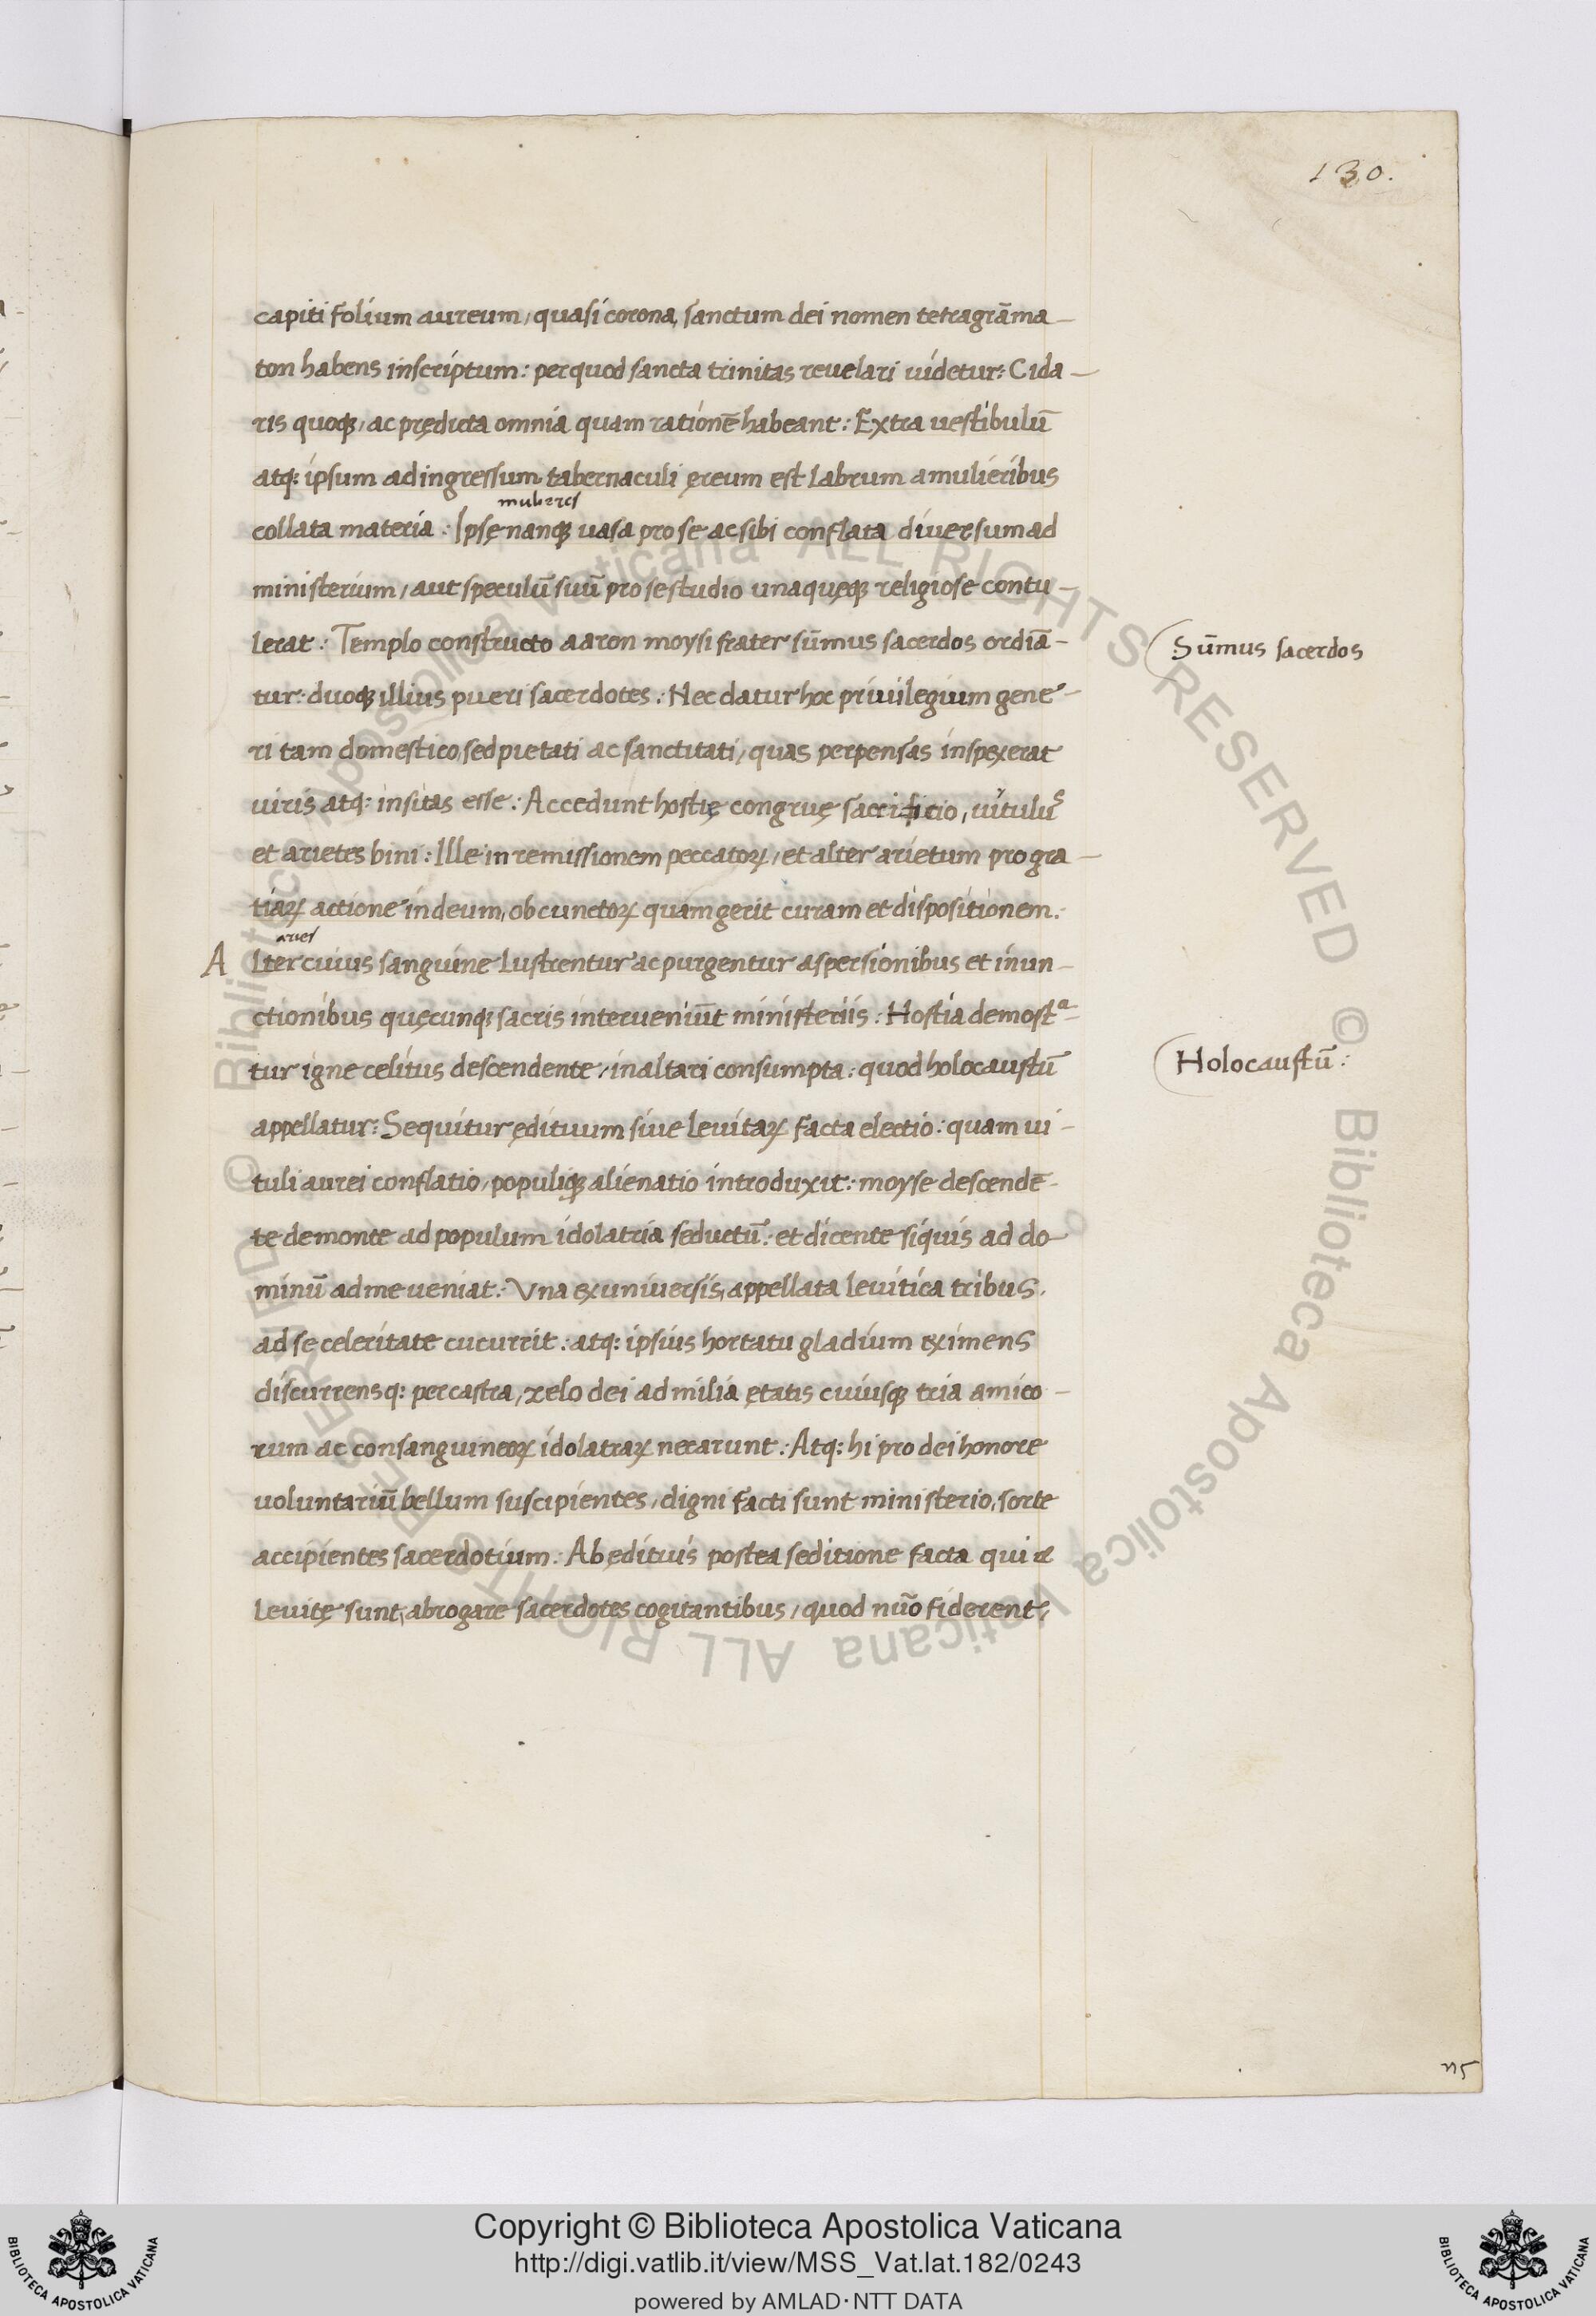 130.
capiti folium aureum, quasi corona, sanctum dei nomen tetragrāma-
ton habens inscriptum: per quod sancta trinitas revelari videtur: Cida-
ris quoq;, ac prędicta omnia quam rationē habeant: Extra vestibulū
atq: ipsum ad ingressum tabernaculi ęreum est labrum a mulieribus
mulieres
collata materia: Ipsę nanq; vasa pro se ac sibi conflata diversum ad
ministerium, aut speculū suū pro se studio unaquęq; religiose contu-
lerat: Templo constructo aaron moysi frater sūmus sacerdos ordiā-
Sūmus sacerdos
tur: duoq; illius pueri sacerdotes: Nec datur hoc privilegium gene-
ri tam domestico, sed pietati ac sanctitati, quas perpensas inspexerat
viris atq: insitas esse: Accedunt hostię congruę sacrificio, vitulus
et arietes bini: Ille in remissionem peccatoꝝ, et alter arietum pro gra-
tiaꝝ actione in deum, ob cunctoꝝ quam gerit curam et dispositionem:
aries
Alter cuius sanguine lustrentur ac purgentur aspersionibus et inun-
ctionibus quęcunq; sacris interveniūt ministeriis: Hostia demostᵃ-
tur igne celitus descendente, in altari consumpta: quod holocaustū
Holocaustū:
appellatur: Sequitur ędituum sive levitaꝝ facta electio: quam vi-
tuli aurei conflatio, populiq; alienatio introduxit: moyse descendē-
te de monte ad populum idolatria seductū: et dicente siquis ad do-
minū ad me veniat: Una ex universis, appellata levitica tribus,
ad se celeritate cucurrit: atq: ipsius hortatu gladium eximens
discurrensq: per castra, zelo dei ad milia ętatis cuiusq; tria amico-
rum ac consanguineoꝝ idolatraꝝ necarunt: Atq: hi pro dei honore
voluntariū bellum suscipientes, digni facti sunt ministerio, sorte
accipientes sacerdotium: Ab ędituis postea seditione facta qui et
levitę sunt, abrogare sacerdotes cogitantibus, quod nūo fiderent,
n5
© Biblioteca Apostolica Vaticana ALL RIGHTS RESERVED © Biblioteca Apostolica Vaticana ALL RIGHTS RESERVED
Copyright © Biblioteca Apostolica Vaticana
http://digi.vatlib.it/view/MSS_Vat.lat.182/0243
powered by AMLAD·NTT DATA
BIBLIOTECA APOSTOLICA VATICANA
BIBLIOTECA APOSTOLICA VATICANA